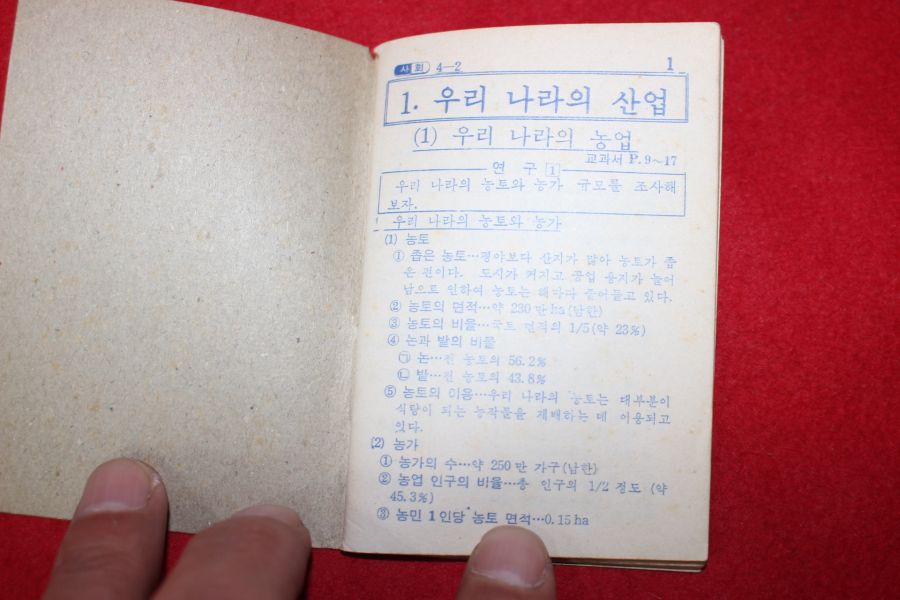 사회 4—2 1
1. 우리 나라의 산업
(1) 우리 나라의 농업
교과서 P.9~17
연 구 1
우리 나라의 농토와 농가 규모를 조사해
보자.
우리 나라의 농토와 농가
(1) 농토
① 좁은 농토…평야보다 산지가 많아 농토가 좁
은 편이다. 도시가 커지고 공업 용지가 늘어
남으로 인하여 농토는 해마다 줄어들고 있다.
② 농토의 면적…약 230만ha(남한)
③ 농토의 비율…국토 면적의 1/5(약 23%)
④ 논과 밭의 비율
㉠ 논…전 농토의 56.2%
㉡ 밭…전 농토의 43.8%
⑤ 농토의 이용…우리 나라의 농토는 대부분이
식량이 되는 농작물을 재배하는 데 이용되고
있다.
(2) 농가
① 농가의 수…약 250만 가구(남한)
② 농업 인구의 비율…총 인구의 1/2 정도 (약
45.3%)
③ 농민 1인당 농토 면적…0.15ha